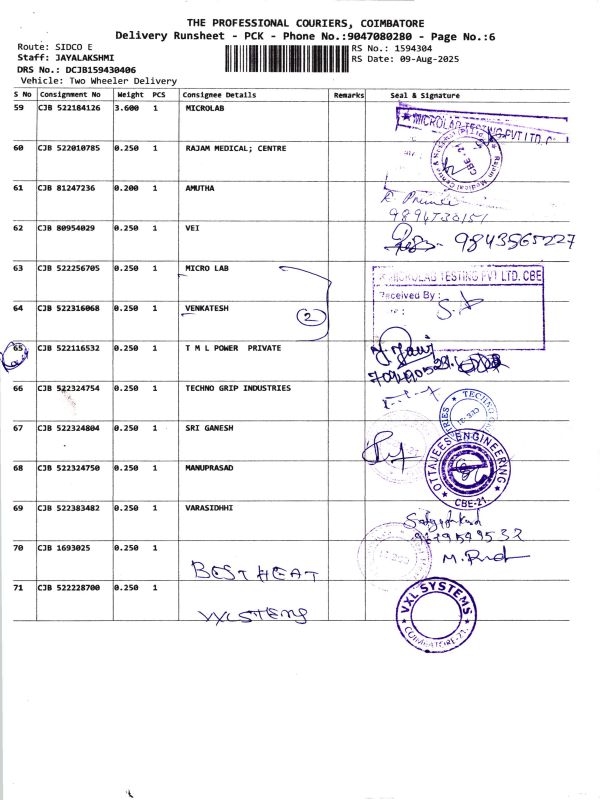 THE PROFESSIONAL COURIERS, COIMBATORE
Delivery Runsheet - PCK - Phone No.:9047080280 - Page No.:6
Route: SIDCO E
RS No.: 1594304
Staff: JAYALAKSHMI
RS Date: 09-Aug-2025
DRS No.: DCJB159430406
Vehicle: Two Wheeler Delivery
S No Consignment No Weight PCS Consignee Details Remarks Seal & Signature
59 CJB 522184126 3.600 1 MICROLAB
MICROLAB TESTING PVT LTD, C
60 CJB 522010785 0.250 1 RAJAM MEDICAL; CENTRE
Rajam Medical Centre
CBE-21
61 CJB 81247236 0.200 1 AMUTHA
9894730151
62 CJB 80954029 0.250 1 VEI
9843565227
63 CJB 522256705 0.250 1 MICRO LAB
MICROLAB TESTING PVT LTD. CBE
Received By :
64 CJB 522316068 0.250 1 VENKATESH
2
65 CJB 522116532 0.250 1 T M L POWER PRIVATE
66 CJB 522324754 0.250 1 TECHNO GRIP INDUSTRIES
TECHNO
67 CJB 522324804 0.250 1 SRI GANESH
OTTAJEES ENGINEERING
CBE-21.
68 CJB 522324750 0.250 1 MANUPRASAD
69 CJB 522383482 0.250 1 VARASIDHHI
70 CJB 1693025 0.250 1
BEST HEAT
71 CJB 522228700 0.250 1
VXL SYSTEMS
COIMBATORE-21.